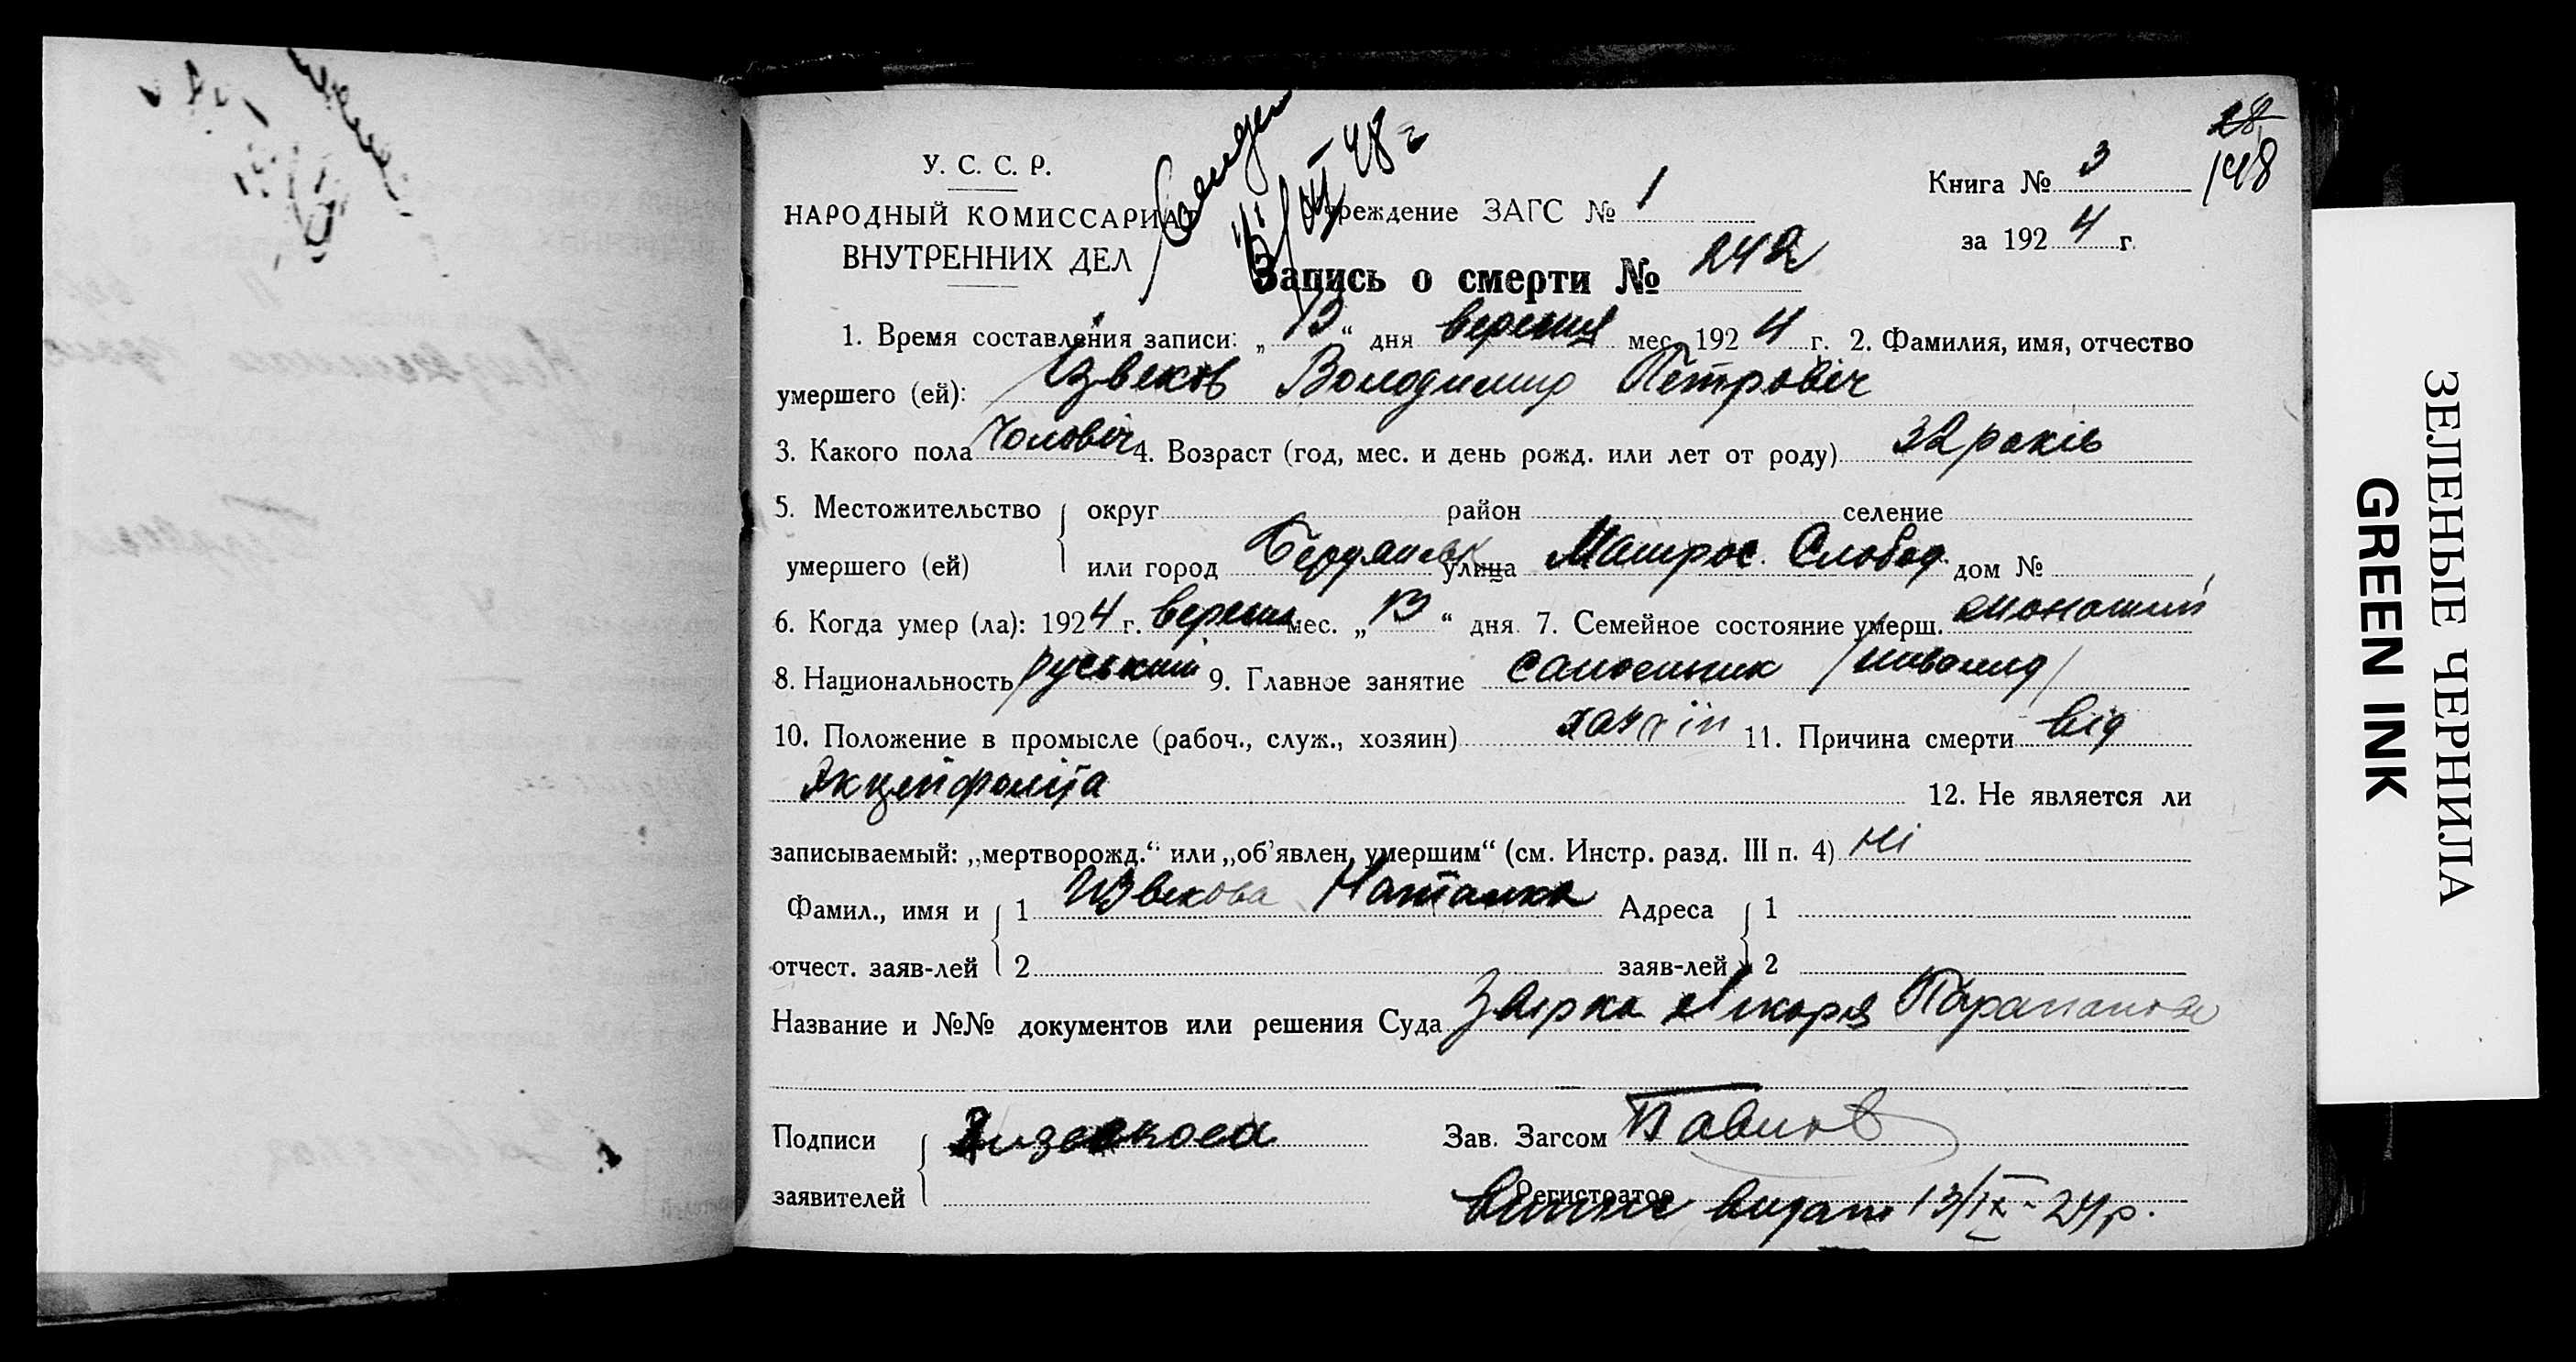 28
148
У. С. С. Р.
НАРОДНЫЙ КОМИССАРИАТ
ВНУТРЕННИХ ДЕЛ
48 г
Учреждение ЗАГС № 1
Книга № 3
за 1924 г.
Запись о смерти № 242
1. Время составления записи: „13“ дня вересня мес. 1924 г. 2. Фамилия, имя, отчество
умершего (ей): Ізвеков Володимир Петровіч
3. Какого пола Чоловіч 4. Возраст (год, мес. и день рожд. или лет от роду) 32 років
5. Местожительство округ район селение
умершего (ей) или город Бердянськ улица Матрос. Слобод. дом №
6. Когда умер (ла): 1924 г. вересня мес. „13“ дня 7. Семейное состояние умерш. жонатий
8. Национальность руський 9. Главное занятие /инвалид/
10. Положение в промысле (рабоч., служ., хозяин) хазяїн 11. Причина смерти від
Энцефаліта
12. Не является ли
записываемый: „мертворожд.“ или „об’явлен, умершим“ (см. Инстр. разд. III п. 4) Ні
Фамил., имя и 1 Извекова Наталка Адреса 1
отчест. заяв-лей 2 заяв-лей 2
Название и №№ документов или решения Суда Лікаря
Подписи Извекова Зав. Загсом Павлов
заявителей Регистратор
видано 13/IX-24р.
ЗЕЛЕНЫЕ ЧЕРНИЛА
GREEN INK